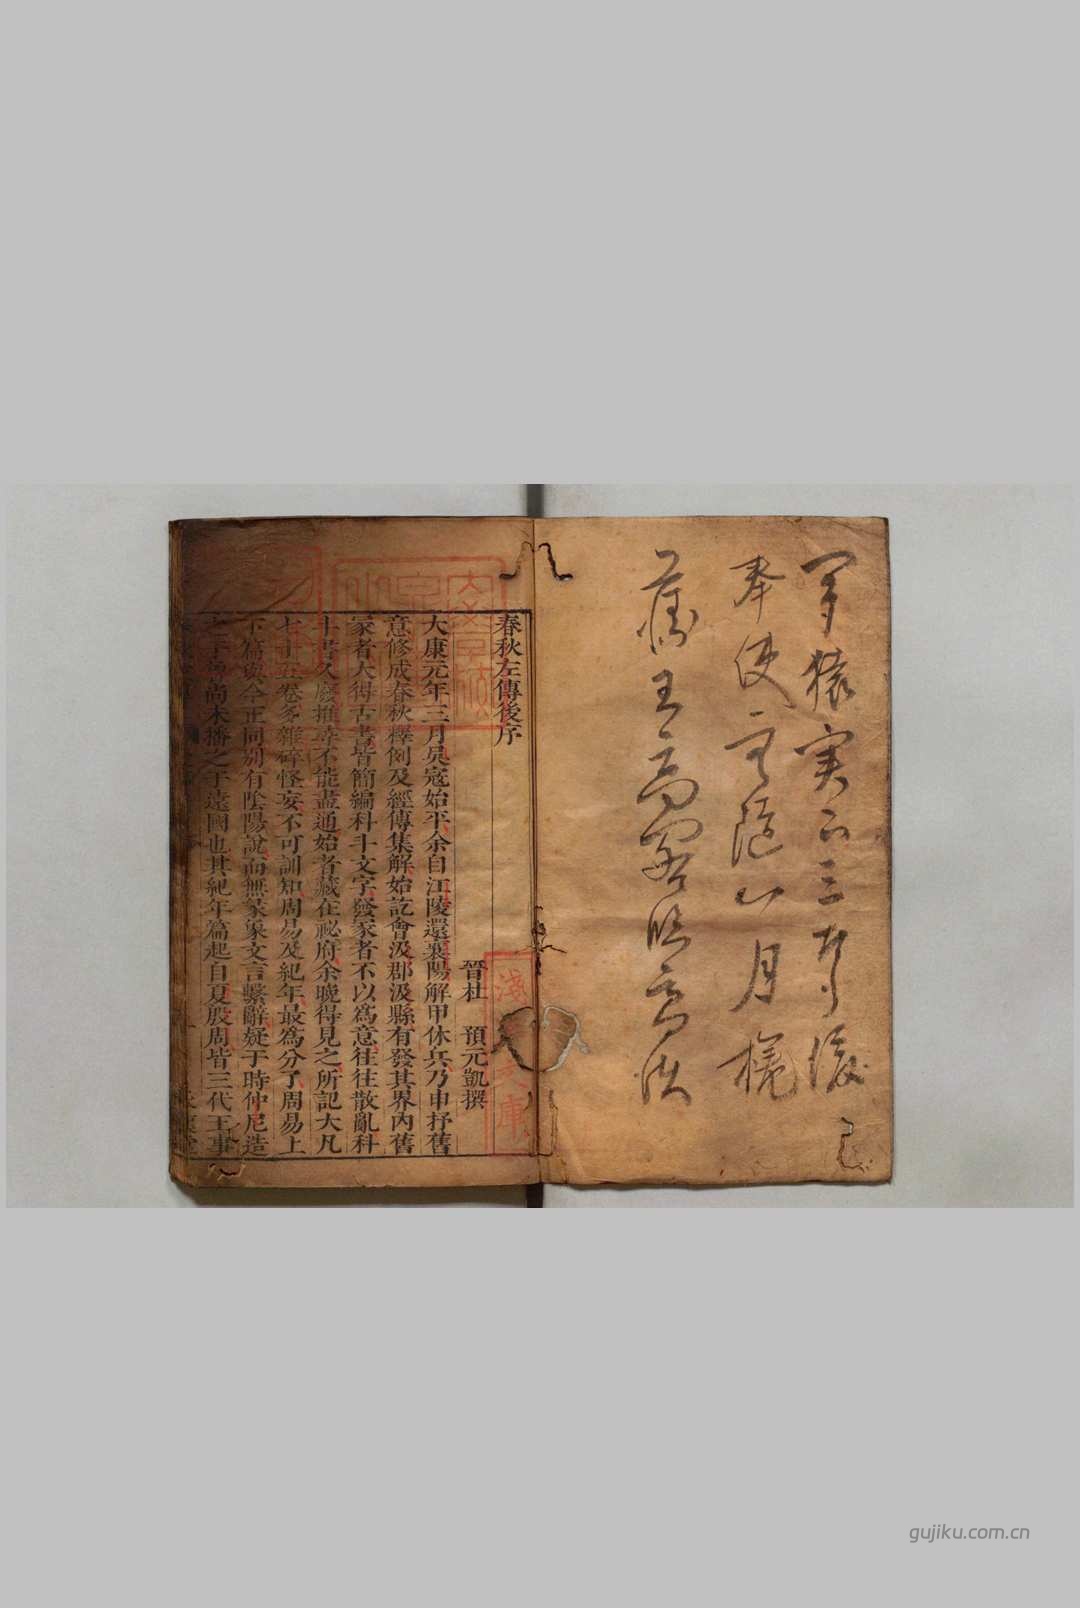 聴猿実下三声涙
奉使虚隨八月槎
春秋左傳後序
晉杜 預元凱撰
大康元年三月吳寇始平余自江陵還襄陽解甲休兵乃申抒舊
意修成春秋釋例及經傳集解始訖會汲郡汲縣有發其界內舊
冢者大得古書皆簡編科斗文字發冢者不以爲意往往散亂科
斗書久廢推尋不能盡通始者藏在祕府余晚得見之所記大凡
七十五卷多雜碎怪妄不可訓知周易及紀年最爲分了周易上
下篇與今正同別有陰陽說而無彖象文言繫辭疑于時仲尼造
之于魯尚未播之于遠國也其紀年篇起自夏殷周皆三代王事
淺草文庫
gujiku.com.cn